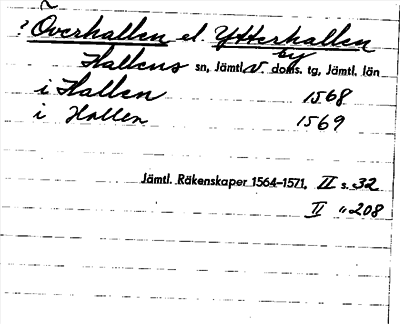 ? Överhallen el. Ytterhallen
by
Hallens sn, Jämtl. V. doms. tg, Jämtl. län
i Hallen 1568
i Hallen 1569
Jämtl. Räkenskaper 1564–1571, II s. 32
II " 208